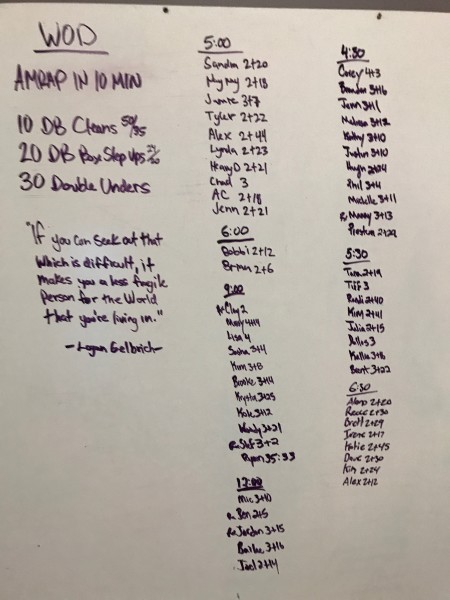 WOD
AMRAP IN 10 MIN
10 DB Cleans 50/35
20 DB Box Step Ups
30 Double Unders
"If you can seek out that
which is difficult, it
makes you a less fragile
person for the world
that you're living in."
-Logan Gelbrich-
5:00
Sandra 2+20
My My 2+18
Jamie 3+7
Tyler 2+22
Alex 2+44
Lynda 2+23
Heavy D 2+21
Chad 3
AC 2+18
Jenn 2+21
6:00
Bobbi 2+12
Brian 2+6
9:00
Rx Clay 2
4+14
Lisa 4
Sasha 3+4
Kim 3+8
Brooke 3+14
Krysta 3+25
Kole 3+12
Wendy 3+21
Rx Stef 3+2
Ryan 35:33
12:00
Mic 3+10
Rx Ben 2+5
Rx Jordan 3+15
Bailee 3+16
Joel 2+14
4:30
Corey 4+3
Brandon 3+16
Jenn 3+1
Melissa 3+12
Kathy 3+10
Justin 3+10
Hugh 2+24
Phil 3+4
Michelle 3+11
Rx Manny 3+13
Preston 2+29
5:30
Tara 2+19
Tiff 3
2+40
Kim 2+41
Julia 2+15
3
Kallie 3+18
Brent 3+22
6:30
2+20
Reese 2+30
Brett 2+29
Irene 2+17
Katie 2+45
Dave 2+30
Kim 2+24
Alex 2+12